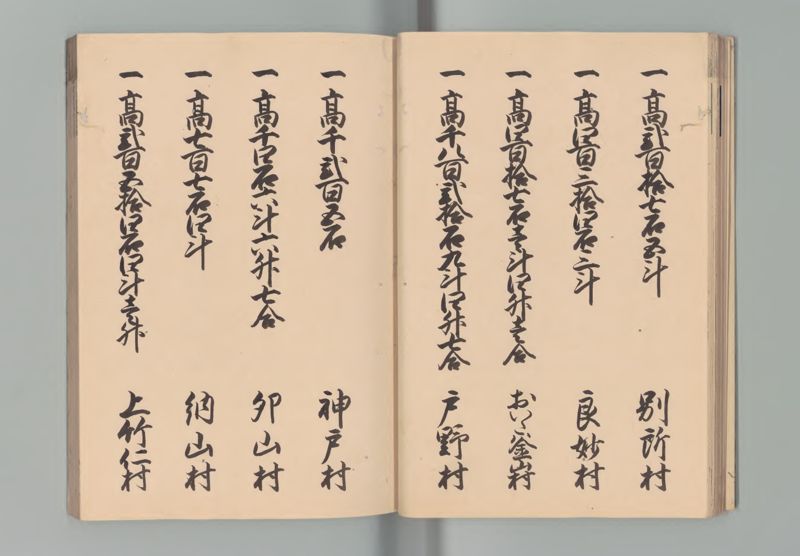 一 髙弐百拾七石五斗 別所村
一 髙四百二拾四石二斗 良妙村
一 髙四百拾七石壱斗四升壱合
一 髙千八百弐拾石九斗四升七合 戸野村
一 髙千弐百五石 神戸村
一 髙千四石六斗六升七合 卯山村
一 髙七百七石四斗 納山村
一 髙弐百五拾四石四斗壱升 上竹仁村